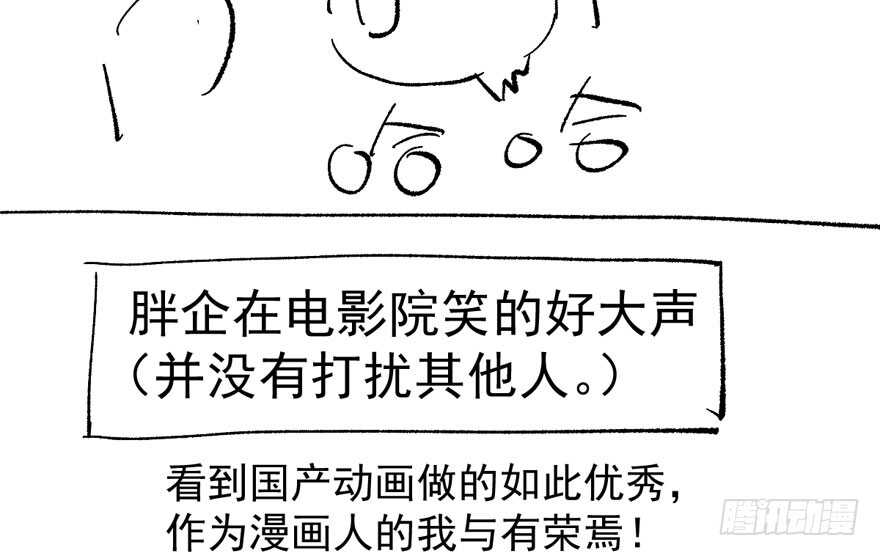 哈哈
胖企在电影院笑的好大声
（并没有打扰其他人。）
看到国产动画做的如此优秀，
作为漫画人的我与有荣焉！
腾讯动漫